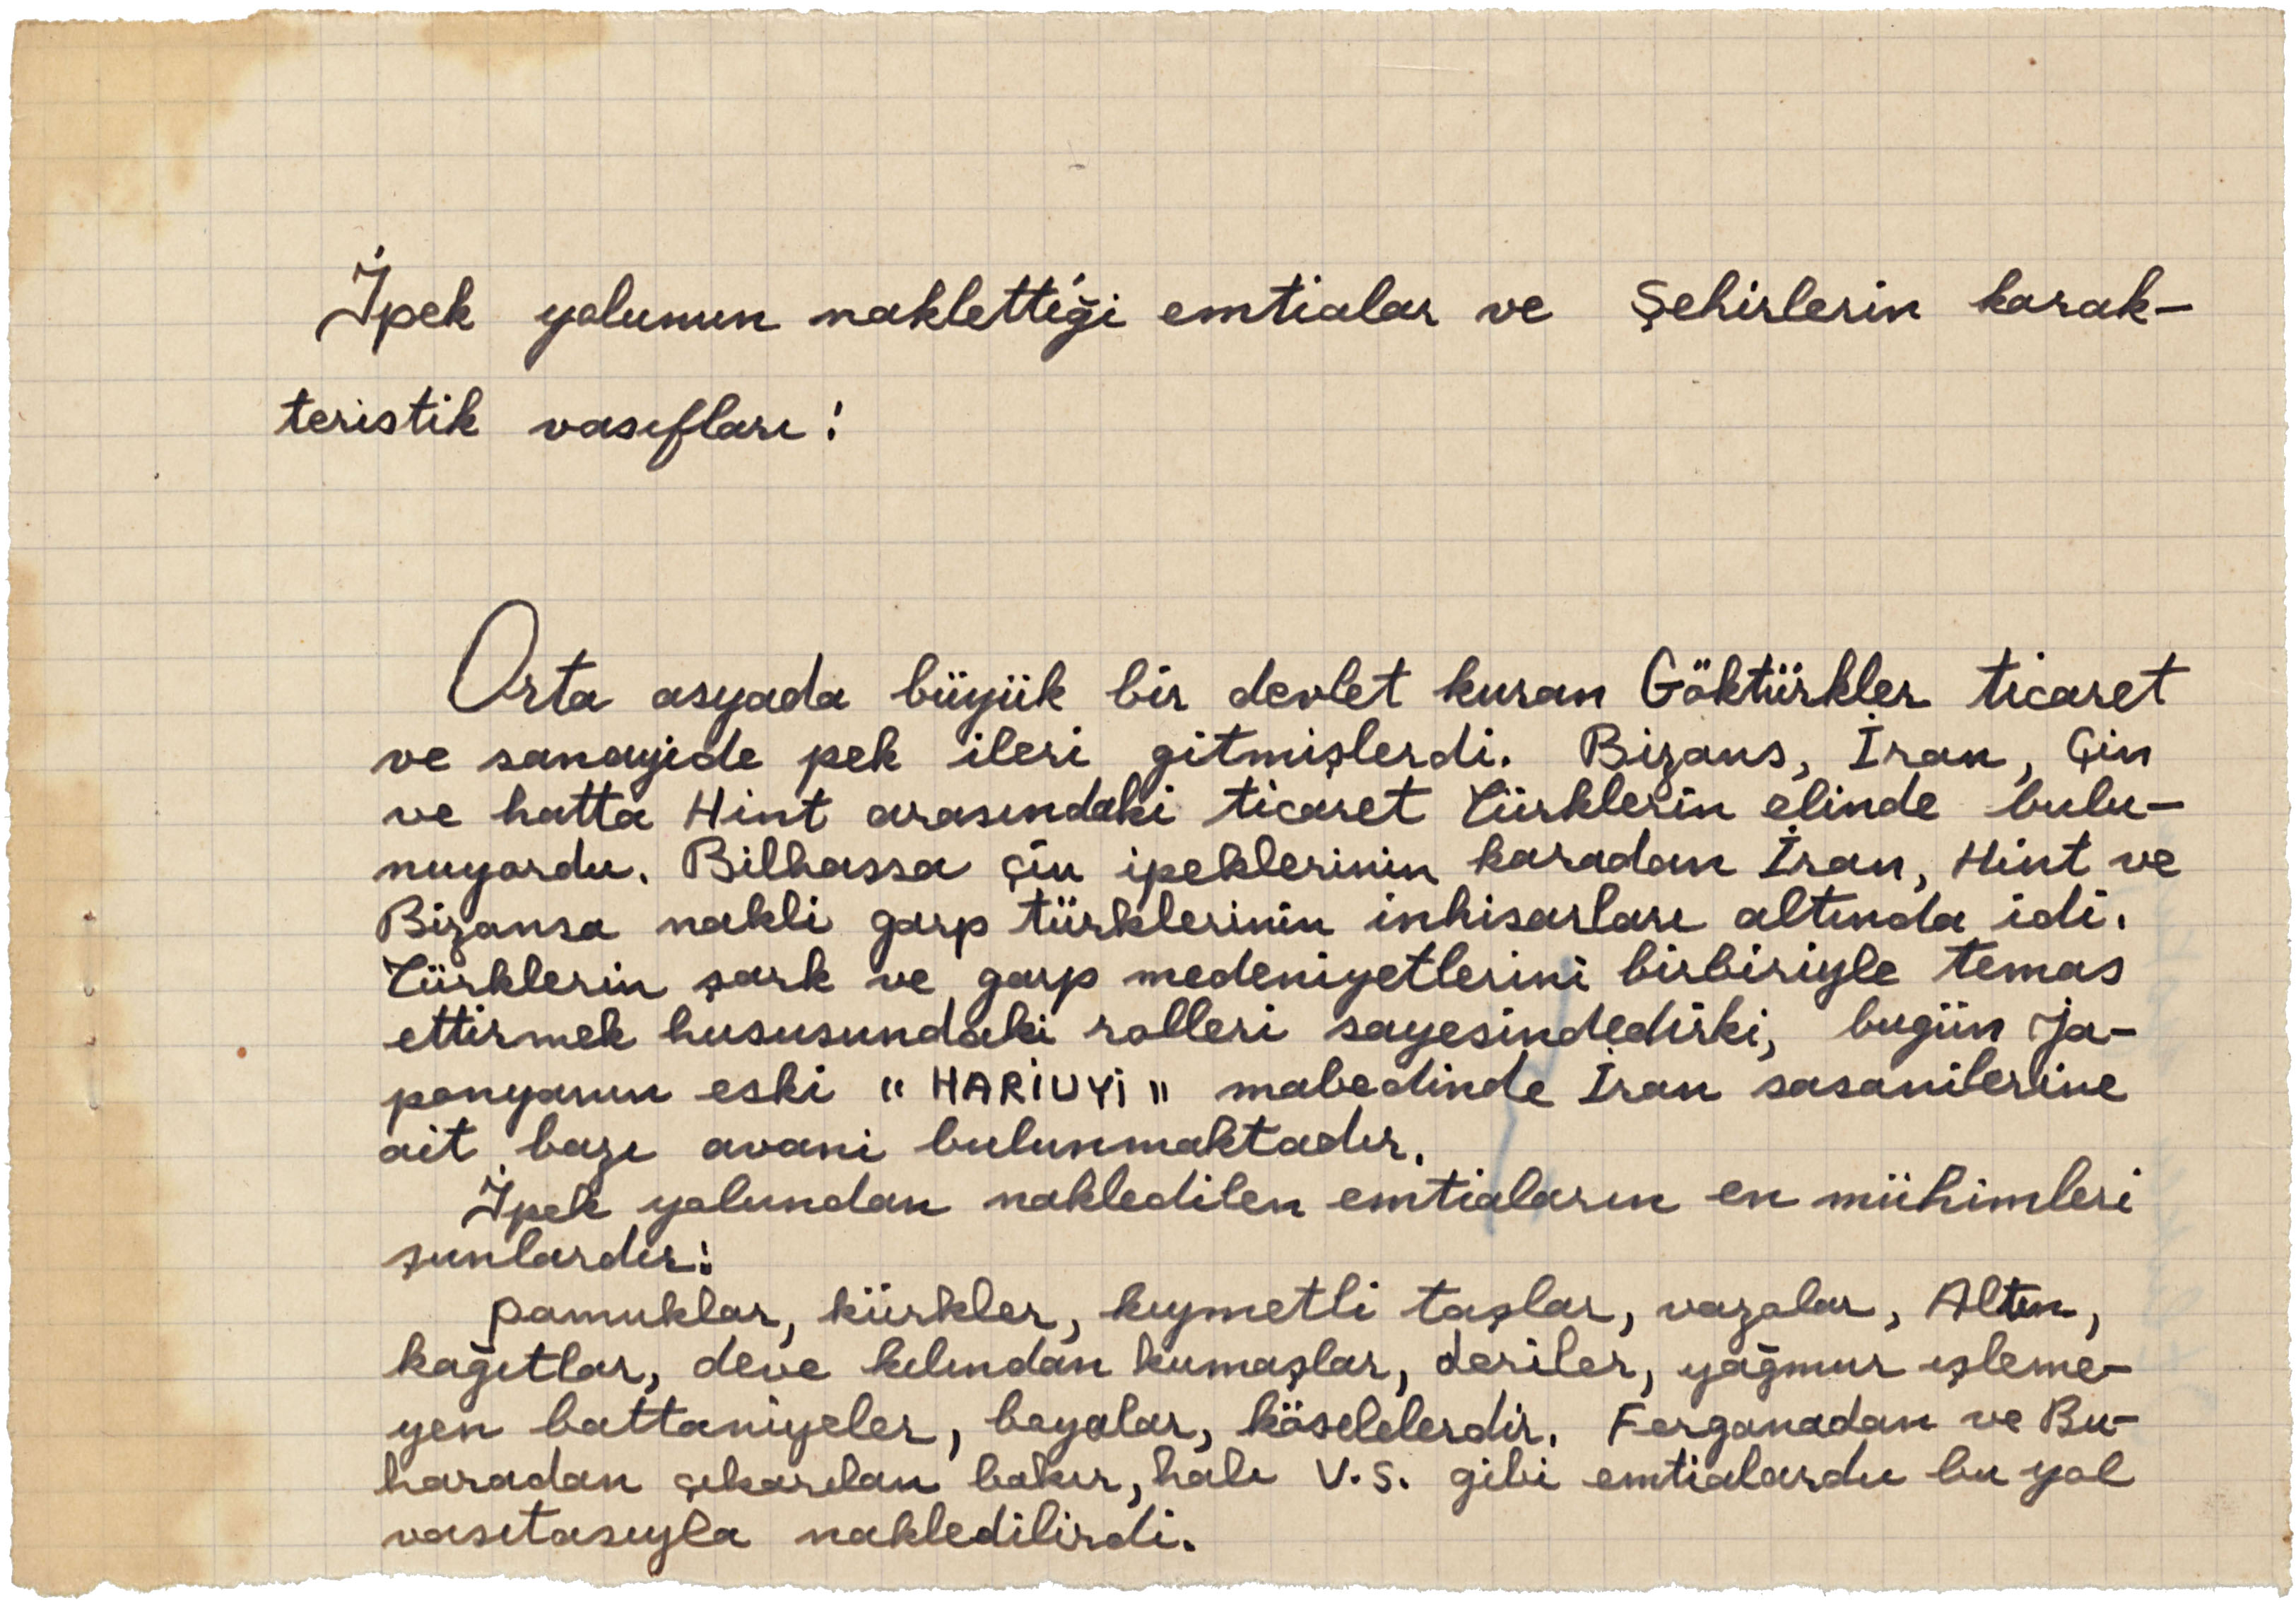 İpek yolunun naklettiği emtialar ve Şehirlerin karak-
teristik vasıfları:
Orta asyada büyük bir devlet kuran Göktürkler ticaret
ve sanayide pek ileri gitmişlerdi. Bizans, İran, Çin
ve hatta Hint arasındaki ticaret Türklerin elinde bulu-
nuyordu. Bilhassa çin ipeklerinin karadan İran, Hint ve
Bizansa nakli garp türklerinin inhisarları altında idi.
Türklerin şark ve garp medeniyetlerini birbiriyle temas
ettirmek hususundaki rolleri sayesindedirki, bugün Ja-
ponyanın eski "HARİUYİ" mabedinde İran sasanilerine
ait bazı avani bulunmaktadır.
İpek yolundan nakledilen emtiaların en mühimleri
şunlardır:
pamuklar, kürkler, kıymetli taşlar, vazolar, Altın,
kağıtlar, deve kılından kumaşlar, deriler, yağmur işleme-
yen battaniyeler, boyalar, köselelerdir. Ferganadan ve Bu-
haradan çıkarılan bakır, halı v.s. gibi emtialarda bu yol
vasıtasıyla nakledilirdi.